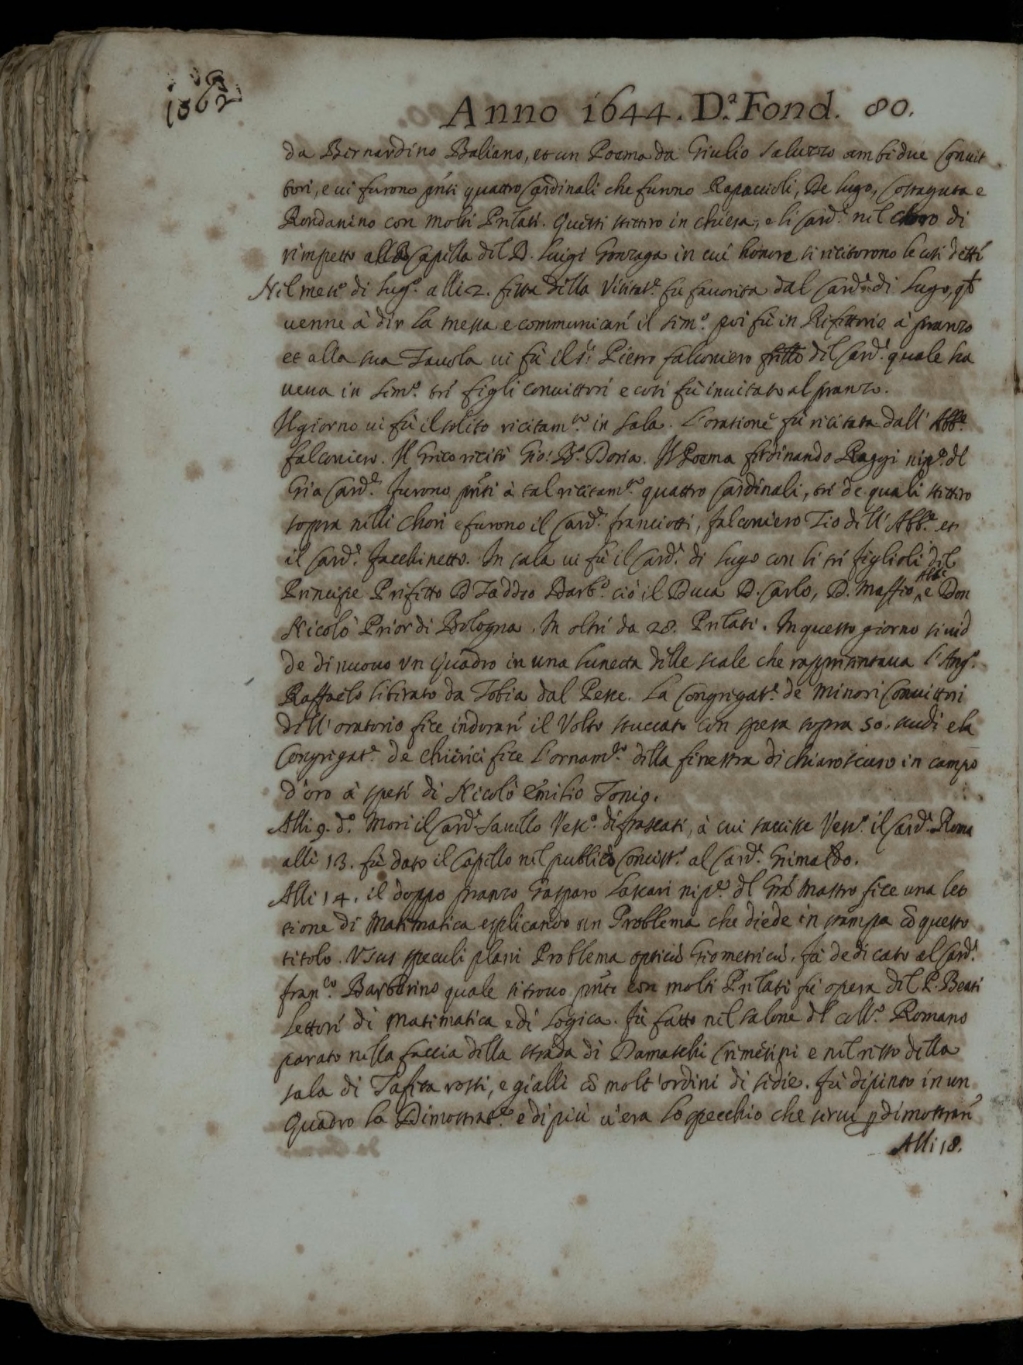 1062
Anno 1644. D.ª Fond. 80.
da Bernardino Baliano, et un Poema da Giulio Saluzzo ambidue Convit
tori, e ui furono pñti quattro Cardinali che furono Rapaccioli, De Lugo, Costaguta e
Rondanino con molti Prelati. Questi stettero in chiesa, e li Card.i nel choro di
rimpetto alla Capella del B. Luigi Gonzaga in cui honore si recitorono le cose dette
Nel mese di Lug.º alli 2. festa della Visitat.e fu fauorita dal Card. di Lugo,
uenne à dir la messa e communicare il Sem.º poi fù in Refettorio à pranzo
et alla sua Tauola ui fù il S.r Pietro Falconiero frãtello del Card.e quale ha
ueua in Sem.º tre figli conuittori e così fù inuitato al pranzo.
Il giorno ui fù il solito recitam.to in sala. L'oratione fù recitata dall' Abb.e
Falconiero. Il Greco recitò Gio: B.a Doria. Il Poema Ferdinando Raggi nip.e del
già Card.e furono pñti à tal recitam.to quattro Cardinali, tre de quali stettero
sopra nelli chori e furono il Card.e Franciotti, Falconiero Zio dell' Abb.e et
il Card.e Facchinetto. In sala ui fù il Card.e di Lugo con li tre figlioli del
Principe Prefetto D. Taddeo Barb.º cioè il Duca D. Carlo, D. Maffeo, Abb.e e Don
Nicolò Prior di Bologna. In oltre da 28. Prelati. In questo giorno si uid
de di nuouo un Quadro in una lunetta delle scale che rappresentaua l'Ang.º
Raffaelo liberato da Tobia dal Pesce. La Congregat.e de Minori Conuittori
dell' oratorio fece indorare il Volto stuccato con spesa sopra 50. scudi e la
Congregat.e de Chierici fece l'ornam.to della finestra di chiaroscuro in campo
d'oro à spese di Nicolò Emilio
Alli 9. d.º Morì il Card.e Sauello Vesc.º di Frascati, à cui successe Vesc.º il Card.e Roma
alli 13. fù dato il Capello nel publico Concist.º al Card.e Grimaldo.
Alli 14. il doppo pranzo Gasparo Lascari nip.e del Grã Mastro fece una let
tione di Matematica esplicando un Problema che diede in stampa cõ questo
titolo. Usus speculi plani Problema opticũ Geometricũ. fù dedicato al Card.e
Fran.co Barberino quale si trouò pñte con molti Prelati fù opera del P. Beati
lettore di Matematica e di Logica. Fù fatto nel salone del Coll.º Romano
parato nella faccia della strada di Damaschi Cremesini e nel resto della
sala di Tafita rossi, e gialli cõ molt' ordini di sedie. Fù dipinto in un
Quadro la Dimostrat.e e di più u'era lo specchio che seruì p dimostrare
Alli 18.